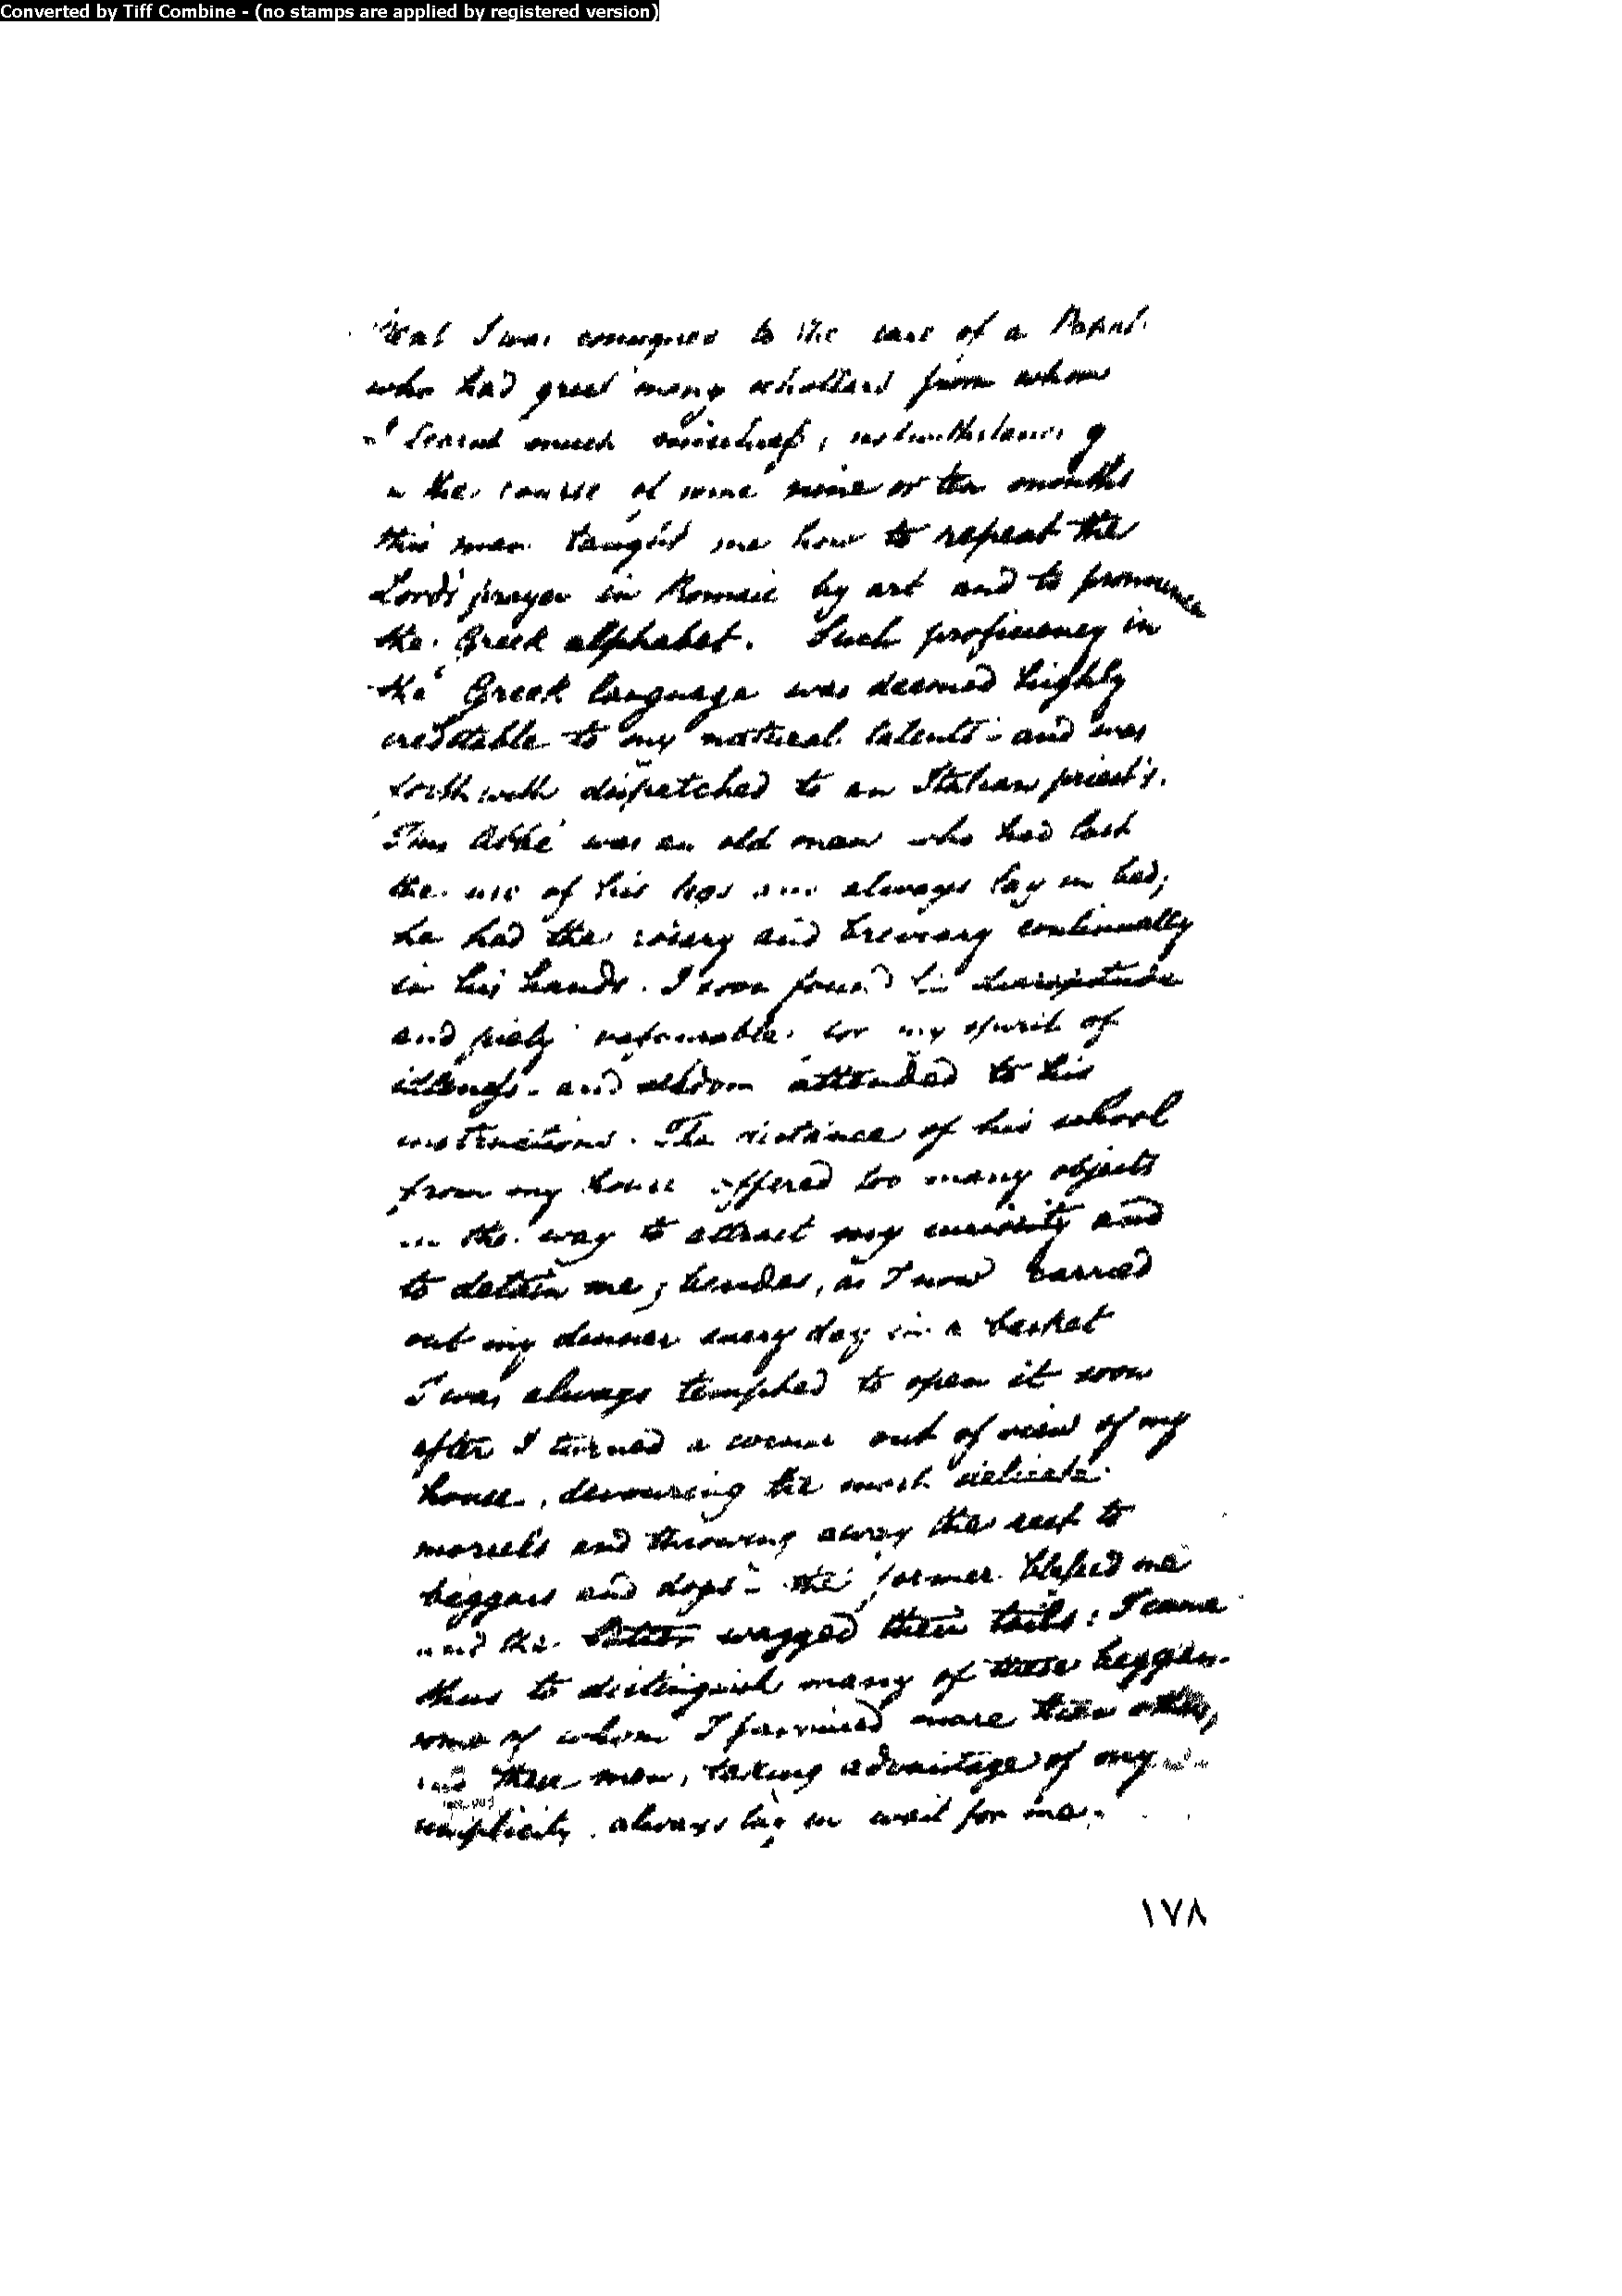 Converted by Tiff Combine - (no stamps are applied by registered version)
that I was consigned to the care of a
who had great many schollars from whom
I learnt much mischief,
in the course of some nine or ten months
this man taught me how to repeat the
Lord's prayer in Romaic by art and to pronounce
the Greek alphabet. Such proficiency in
the Greek language was deemed highly
creditable to my natural talents - and was
forthwith dispatched to an Italian priest's.
This Abbé was an old man who had lost
the use of his legs and always lay in bed;
he had the rosary and breviary continually
in his hands. I soon found his
and piety favourable for my spirit of
idleness - and seldom attended to his
instructions. The distance of his school
from my house offered too many objects
in the way to attract my curiosity and
to detain me; besides, as I now carried
out my dinner every day in a basket
I was always tempted to open it soon
after I turned a corner out of view of my
house, devouring the most delicate
morsels and throwing away the rest to
beggars and dogs - the former blessed me
and the latter wagged their tails: I came
thus to distinguish many of these beggars
some of whom I favoured more than others,
and these men, taking advantage of my
simplicity always lay in wait for me.
١٧٨